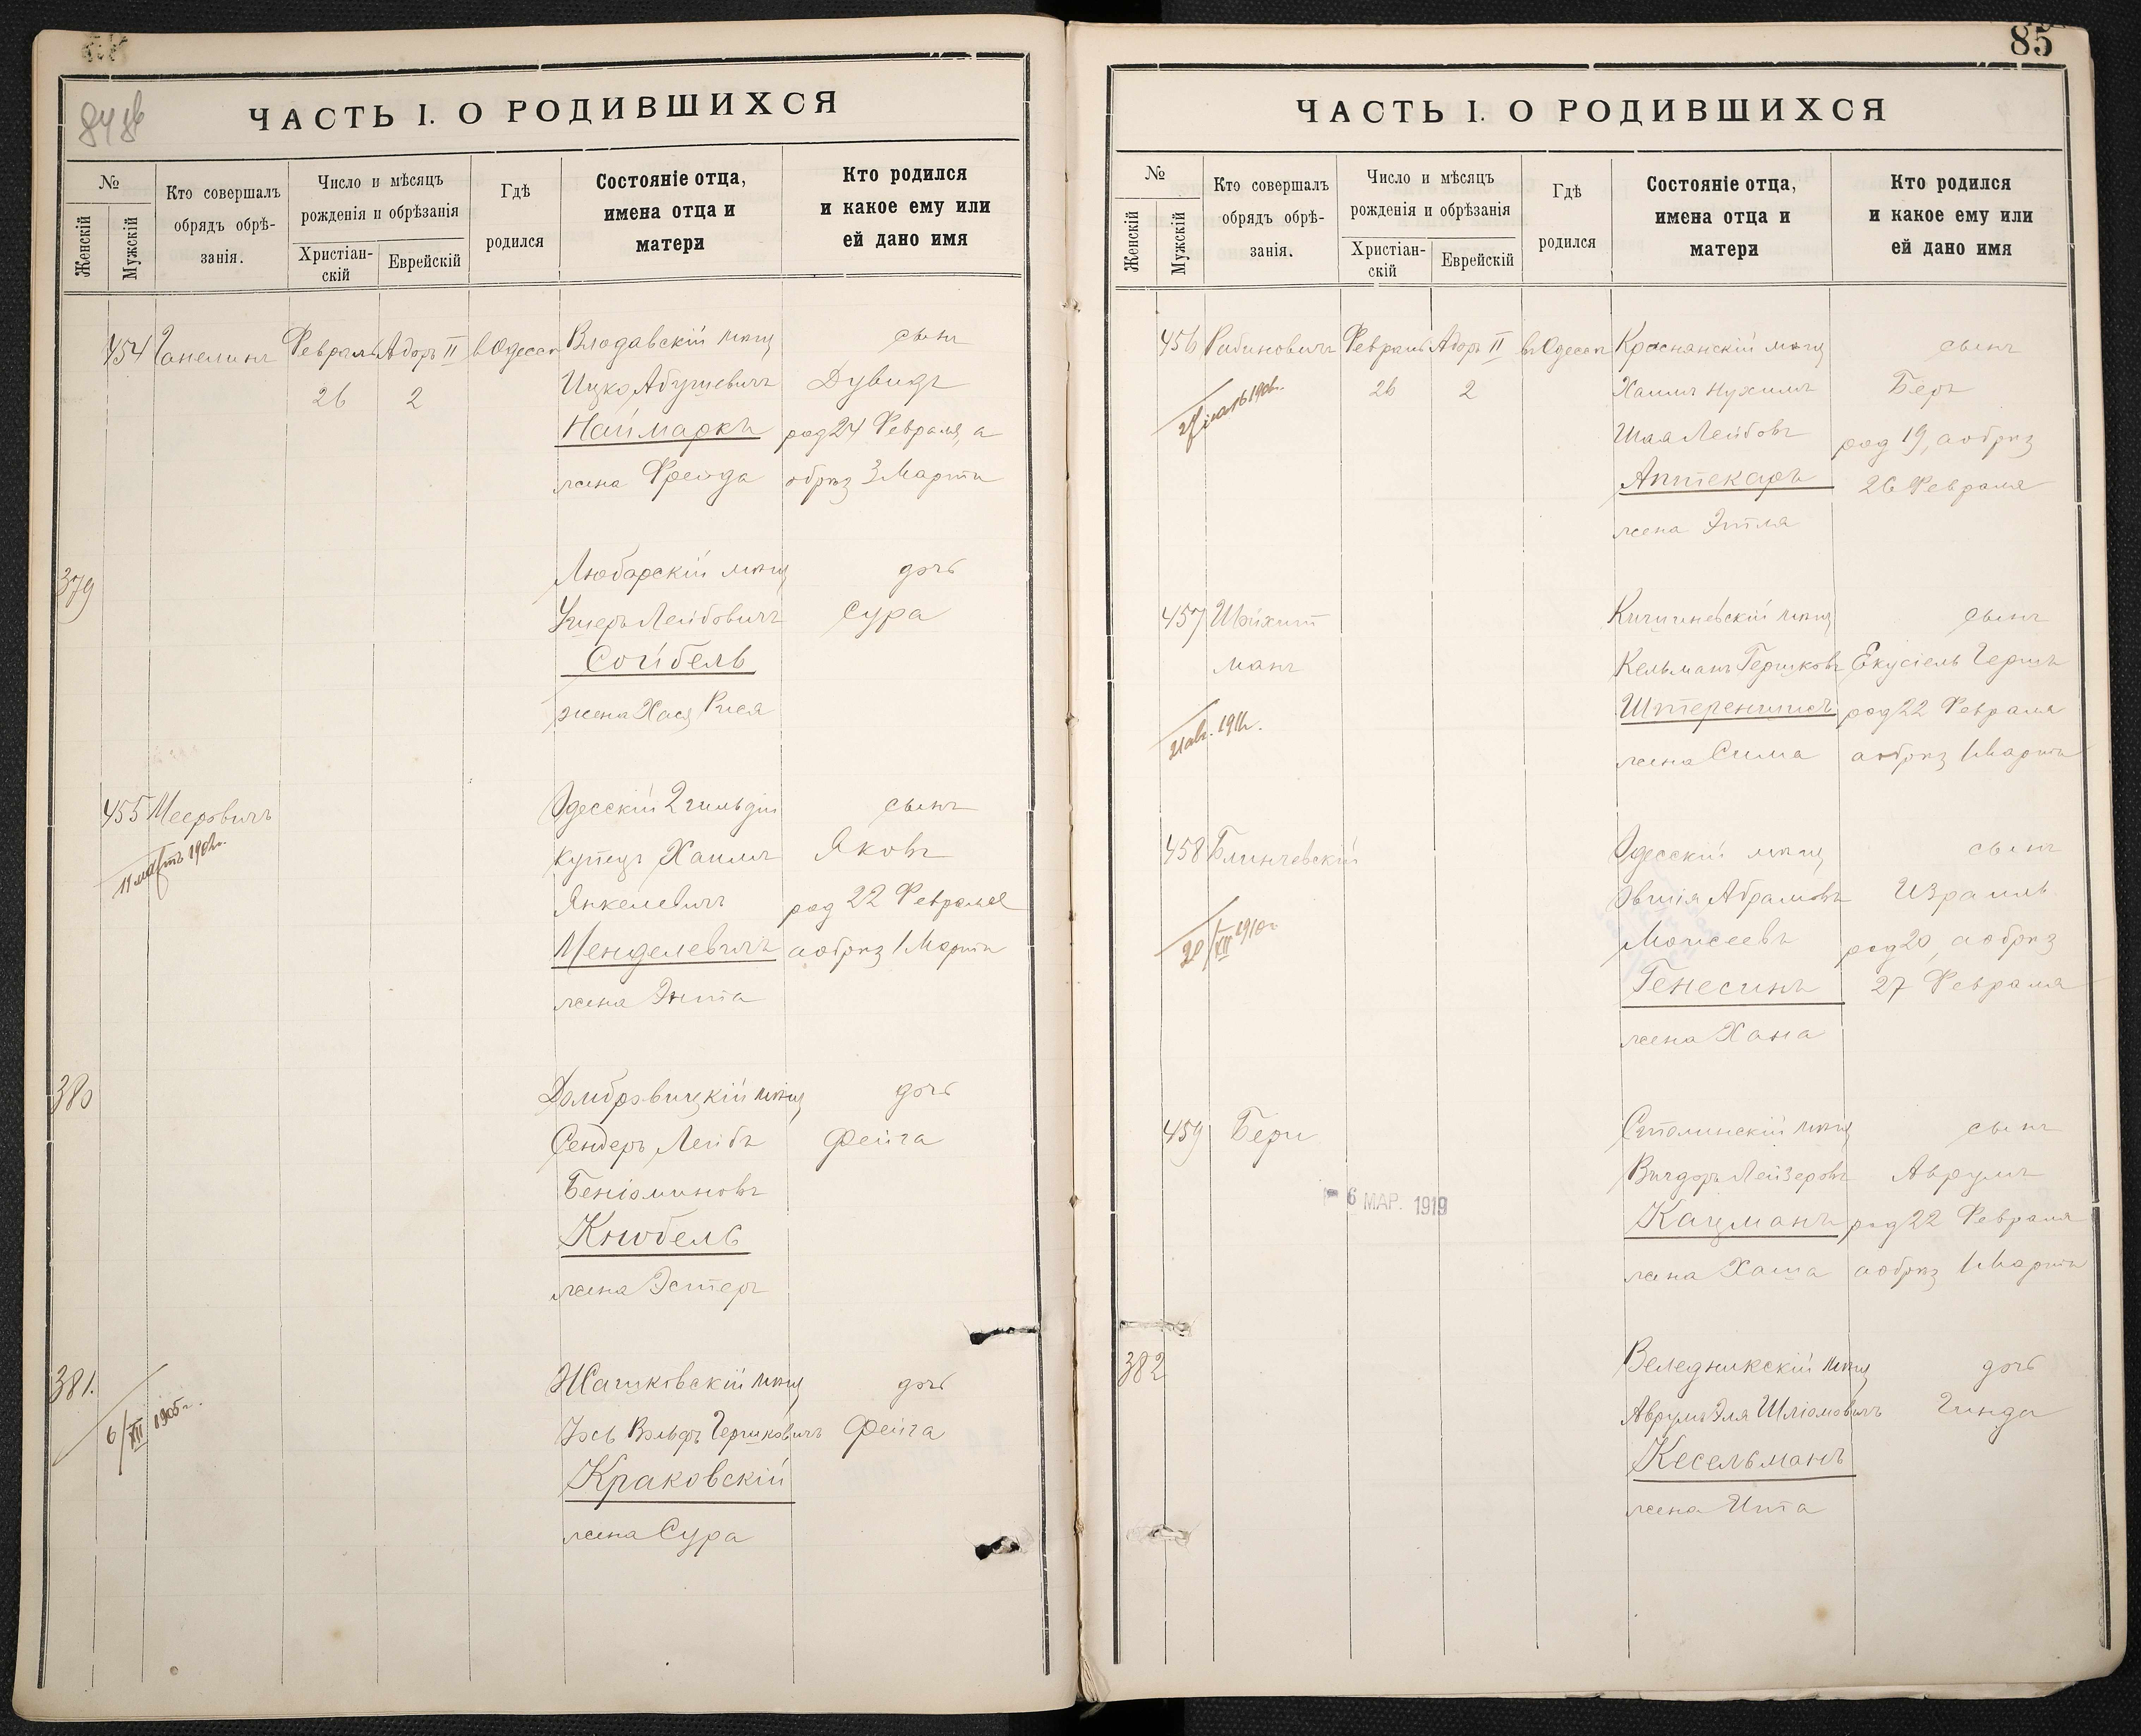 84 об
ЧАСТЬ I. О РОДИВШИХСЯ
№
Женскій
Мужскій
Кто совершалъ
обрядъ обрѣ-
занія.
Число и мѣсяцъ
рожденія и обрѣзанія
Христіан-
скій
Еврейскій
Гдѣ
родился
Состояніе отца,
имена отца и
матери
Кто родился
и какое ему или
ей дано имя
454 Ганелинъ Февраль Адоръ II въ Одессѣ Влодавскій мѣщ сынъ
26 2 Ицко Абушевичъ Дувидъ
Наймаркъ род 24 Февраля, а
жена Фрейда обрѣз 3 Марта
379 Любарскій мѣщ дочь
Ушеръ Лейбовичъ Сура
Сойбель
жена Хася Рися
455 Мееровичъ Одесскій 2 гильдіи сынъ
11 мартъ 1902г. купецъ Хаимъ Яковъ
Янкелевичъ род 22 Февраля
Менделевичъ а обрѣз 1 Марта
жена Энта
380 Домбровицкій мѣщ дочь
Сендеръ Лейбъ Фейга
Беніоминовъ
Кнобель
жена Эстеръ
381. Жашковскій мѣщ дочь
6/XII 1905г. Іось Вольфъ Гершковичъ Фейга
Краковскій
жена Сура
85
ЧАСТЬ I. О РОДИВШИХСЯ
№
Женскій
Мужскій
Кто совершалъ
обрядъ обрѣ-
занія.
Число и мѣсяцъ
рожденія и обрѣзанія
Христіан-
скій
Еврейскій
Гдѣ
родился
Состояніе отца,
имена отца и
матери
Кто родился
и какое ему или
ей дано имя
456 Рабиновичъ Февраль Адоръ II въ Одессѣ Краснянскій мѣщ сынъ
26 2 Хаимъ Нухимъ Беръ
Шая Лейбовъ род 19, а обрѣз
Аптекаръ 26 Февраля
жена Этля
457 Шойхит Кишиневскій мѣщ сынъ
манъ Кельманъ Гершковъ Екусіель Гершъ
Штереншисъ род 22 Февраля
жена Сима а обрѣз 1 Марта
458 Блинчевскій Одесскій мѣщ сынъ
Овшія Абрамовъ Израиль
20/XII 1910г Моисеевъ род 20, а обрѣз
Генесинъ 27 Февраля
жена Хана
459 Бери Столинскій мѣщ сынъ
Вигдоръ Лейзеровъ Аврумъ
6 МАР. 1919 Кацманъ род 22 Февраля
жена Хаша а обрѣз 1 Марта
382 Веледникскій мѣщ дочь
Аврумъ Эля Шліомовичъ Гинда
Кесельманъ
жена Ита